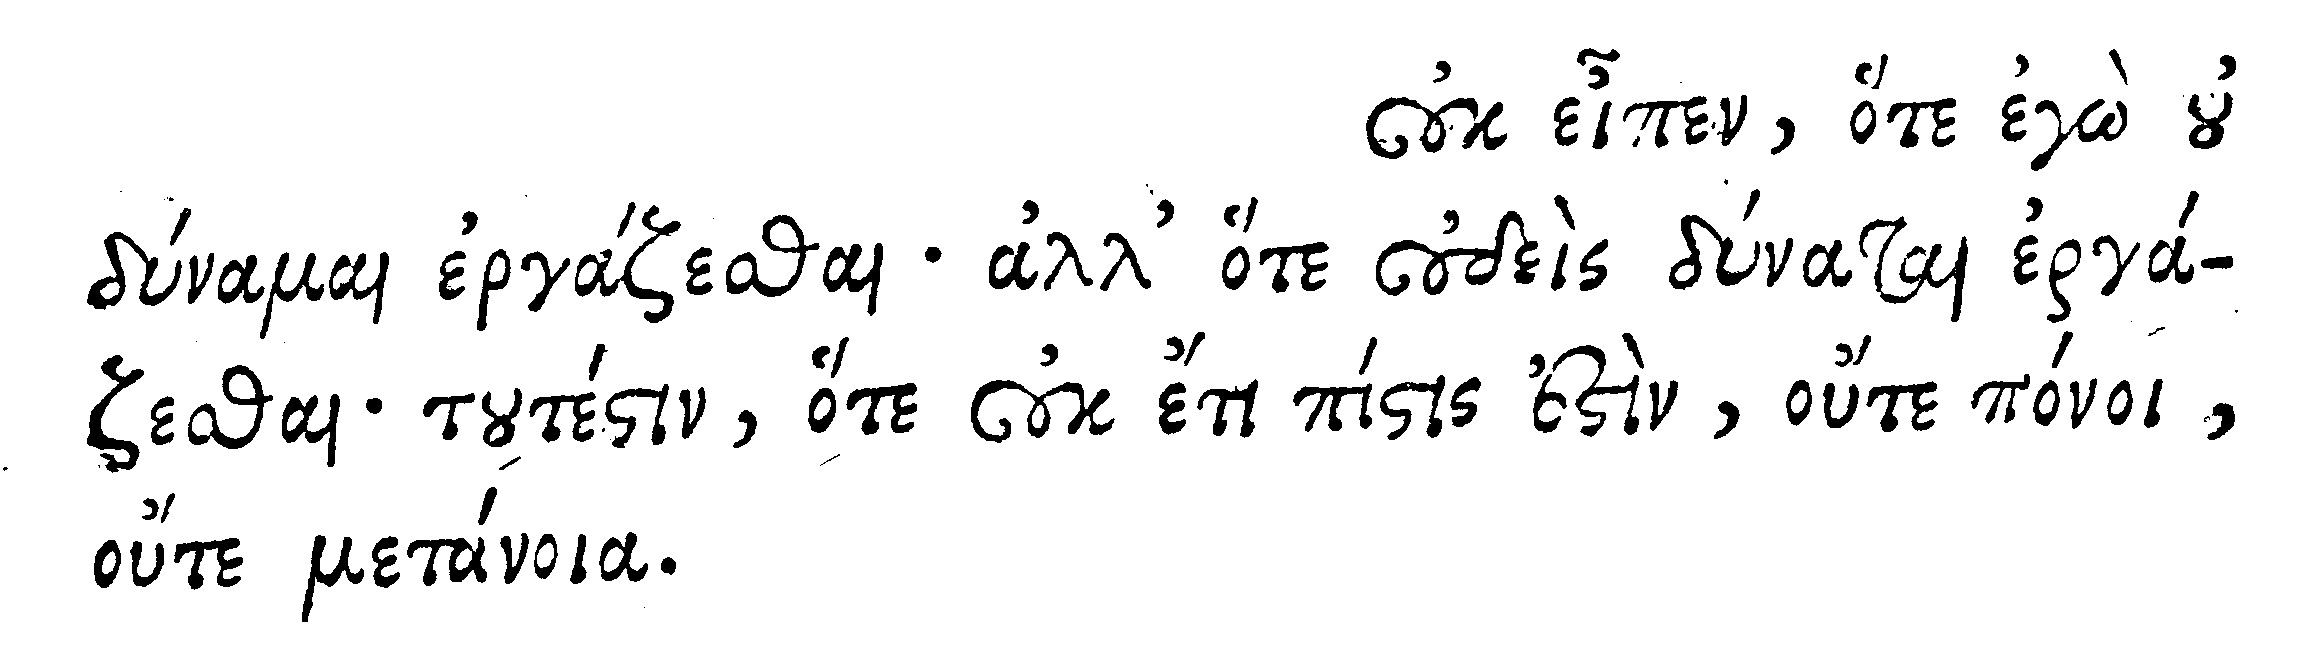 οὐκ εἶπεν, ὅτε ἐγὼ οὐ
δύναμαι ἐργάζεσθαι· ἀλλ’ ὅτε οὐδεὶς δύναται ἐργά-
ζεσθαι· τουτέστιν, ὅτε οὐκ ἔτι πίστις ἐστὶν, οὔτε πόνοι,
οὔτε μετάνοια.